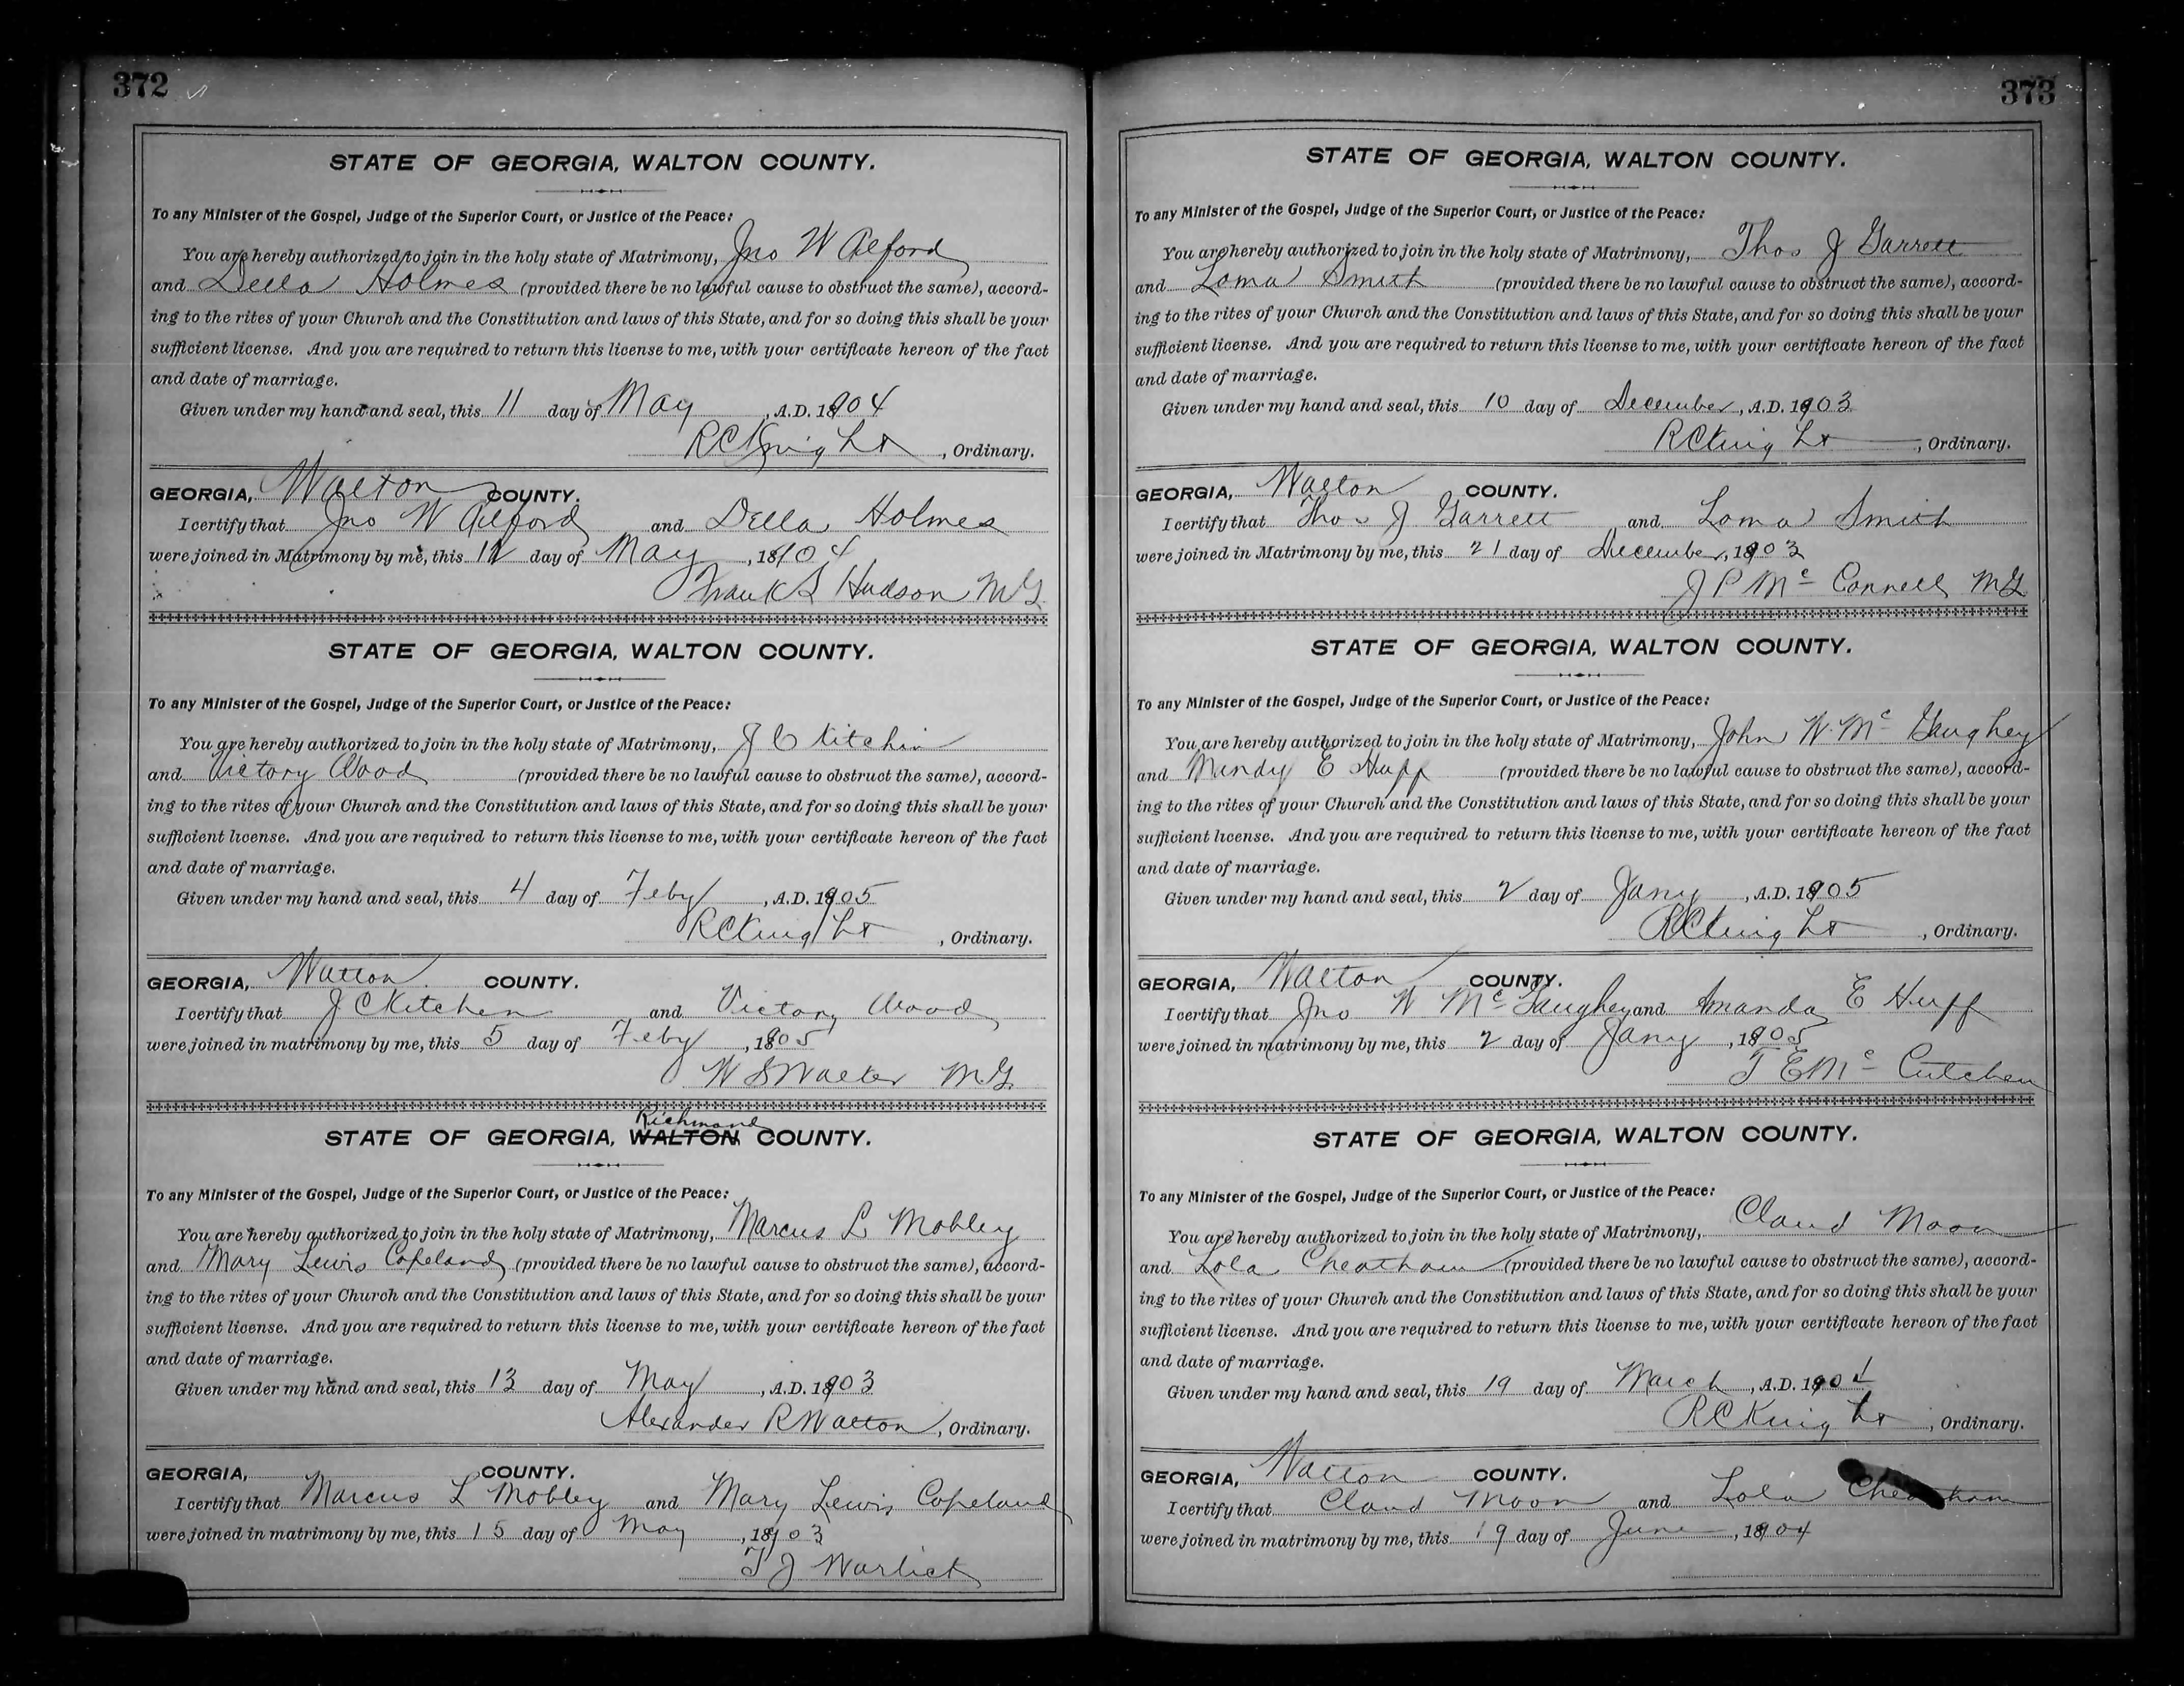 372
STATE OF GEORGIA, WALTON COUNTY.
To any Minister of the Gospel, Judge of the Superior Court, or Justice of the Peace:
You are hereby authorized to join in the holy state of Matrimony, Jno W Alford
and Della Holmes (provided there be no lawful cause to obstruct the same), accord-
ing to the rites of your Church and the Constitution and laws of this State, and for so doing this shall be your
sufficient license. And you are required to return this license to me, with your certificate hereon of the fact
and date of marriage.
Given under my hand and seal, this 11 day of May, A.D. 1904
R C Knight, Ordinary.
GEORGIA, Walton COUNTY.
I certify that Jno W Alford and Della Holmes
were joined in Matrimony by me, this 12 day of May, 1904
Frank S Hudson M G
STATE OF GEORGIA, WALTON COUNTY.
To any Minister of the Gospel, Judge of the Superior Court, or Justice of the Peace:
You are hereby authorized to join in the holy state of Matrimony, J C Kitchin
and Victory Wood (provided there be no lawful cause to obstruct the same), accord-
ing to the rites of your Church and the Constitution and laws of this State, and for so doing this shall be your
sufficient license. And you are required to return this license to me, with your certificate hereon of the fact
and date of marriage.
Given under my hand and seal, this 4 day of Feby, A.D. 1905
R C Knight, Ordinary.
GEORGIA, Walton COUNTY.
I certify that J C Kitchen and Victory Wood
were joined in matrimony by me, this 5 day of Feby, 1905
W S Walker M G
Richmond
STATE OF GEORGIA, WALTON COUNTY.
To any Minister of the Gospel, Judge of the Superior Court, or Justice of the Peace:
You are hereby authorized to join in the holy state of Matrimony, Marcus L Mobley
and Mary Lewis Copeland (provided there be no lawful cause to obstruct the same), accord-
ing to the rites of your Church and the Constitution and laws of this State, and for so doing this shall be your
sufficient license. And you are required to return this license to me, with your certificate hereon of the fact
and date of marriage.
Given under my hand and seal, this 13 day of May, A.D. 1903
Alexander R Walton, Ordinary.
GEORGIA, COUNTY.
I certify that Marcus L Mobley and Mary Lewis Copeland
were joined in matrimony by me, this 15 day of May, 1903
T J Warlick
373
STATE OF GEORGIA, WALTON COUNTY.
To any Minister of the Gospel, Judge of the Superior Court, or Justice of the Peace:
You are hereby authorized to join in the holy state of Matrimony, Thos J Garrett
and Loma Smith (provided there be no lawful cause to obstruct the same), accord-
ing to the rites of your Church and the Constitution and laws of this State, and for so doing this shall be your
sufficient license. And you are required to return this license to me, with your certificate hereon of the fact
and date of marriage.
Given under my hand and seal, this 10 day of December, A.D. 1903
R C Knight, Ordinary.
GEORGIA, Walton COUNTY.
I certify that Thos J Garrett and Loma Smith
were joined in Matrimony by me, this 21 day of December, 1903
J P McConnell M G
STATE OF GEORGIA, WALTON COUNTY.
To any Minister of the Gospel, Judge of the Superior Court, or Justice of the Peace:
You are hereby authorized to join in the holy state of Matrimony, John W. McGaughey
and Mandy E Huff (provided there be no lawful cause to obstruct the same), accord-
ing to the rites of your Church and the Constitution and laws of this State, and for so doing this shall be your
sufficient license. And you are required to return this license to me, with your certificate hereon of the fact
and date of marriage.
Given under my hand and seal, this 2 day of Jany, A.D. 1905
R C Knight, Ordinary.
GEORGIA, Walton COUNTY.
I certify that Jno W McGaughey and Amanda E Huff
were joined in matrimony by me, this 2 day of Jany, 1905
T E McCutchen
STATE OF GEORGIA, WALTON COUNTY.
To any Minister of the Gospel, Judge of the Superior Court, or Justice of the Peace:
You are hereby authorized to join in the holy state of Matrimony, Claud Moon
and Lola Cheatham (provided there be no lawful cause to obstruct the same), accord-
ing to the rites of your Church and the Constitution and laws of this State, and for so doing this shall be your
sufficient license. And you are required to return this license to me, with your certificate hereon of the fact
and date of marriage.
Given under my hand and seal, this 19 day of March, A.D. 1904
R C Knight, Ordinary.
GEORGIA, Walton COUNTY.
I certify that Claud Moon and Lola Cheatham
were joined in matrimony by me, this 19 day of June, 1904